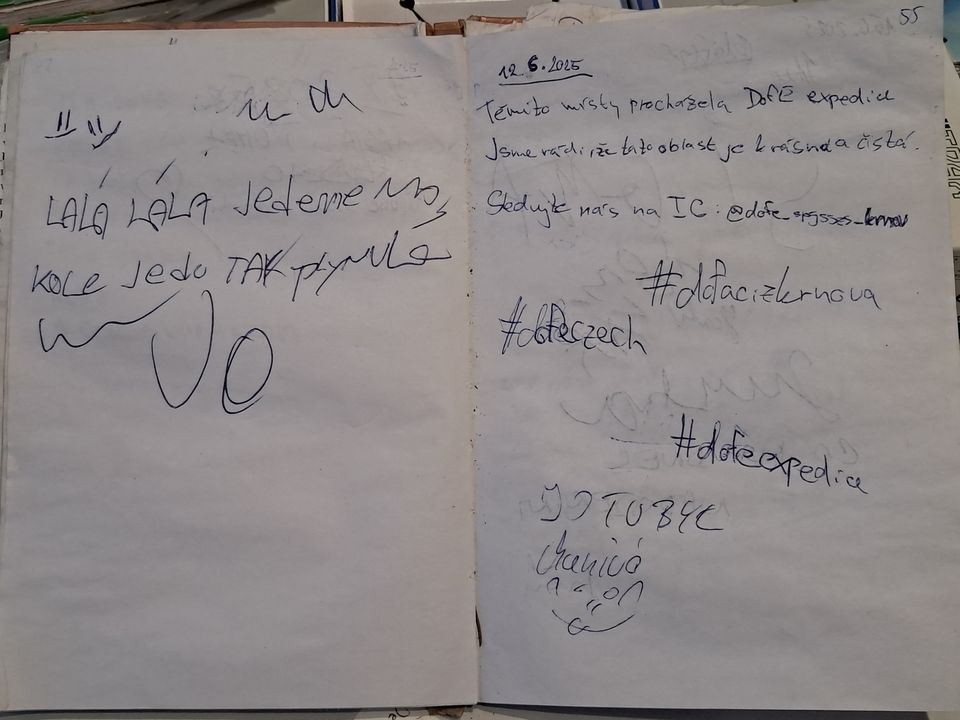 LALÁ LÁLA Jedeme na
kole Jedo TAK plynule
JO
55
12.6.2025
Těmito místy procházela DofE expedice
Jsme rádi, že tato oblast je krásná a čistá.
Sledujte nás na IG: @dofe_spgsszs_krnov
#dofacizkrnova
#dofeczech
#dofeexpedice
JO TU BYL